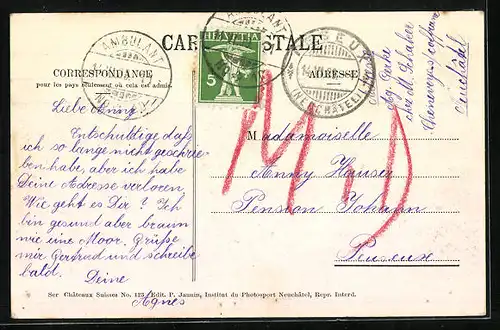 AMBULANT
CARTE POSTALE
HELVETIA
5
AMBULANT
CORRESPONDANCE
pour les pays seulement où cela est admis.
ADRESSE
(NEUCHÂTEL)
Liebe Anny.
Entschuldige daß
ich so lange nicht geschrie-
ben habe, aber ich habe
Deine Adresse verloren.
Wie geht es Dir? Ich
bin gesund aber braun
wie eine Moor. Grüße
mir Gertrud und schreibe
bald.
Deine
Agnes
Mademoiselle
Anny Hauser
Pension Johann
Peseux
Ser Châteaux Suisses No. 123 Edit. P. Jannin, Institut du Photosport Neuchâtel, Repr. Interd.